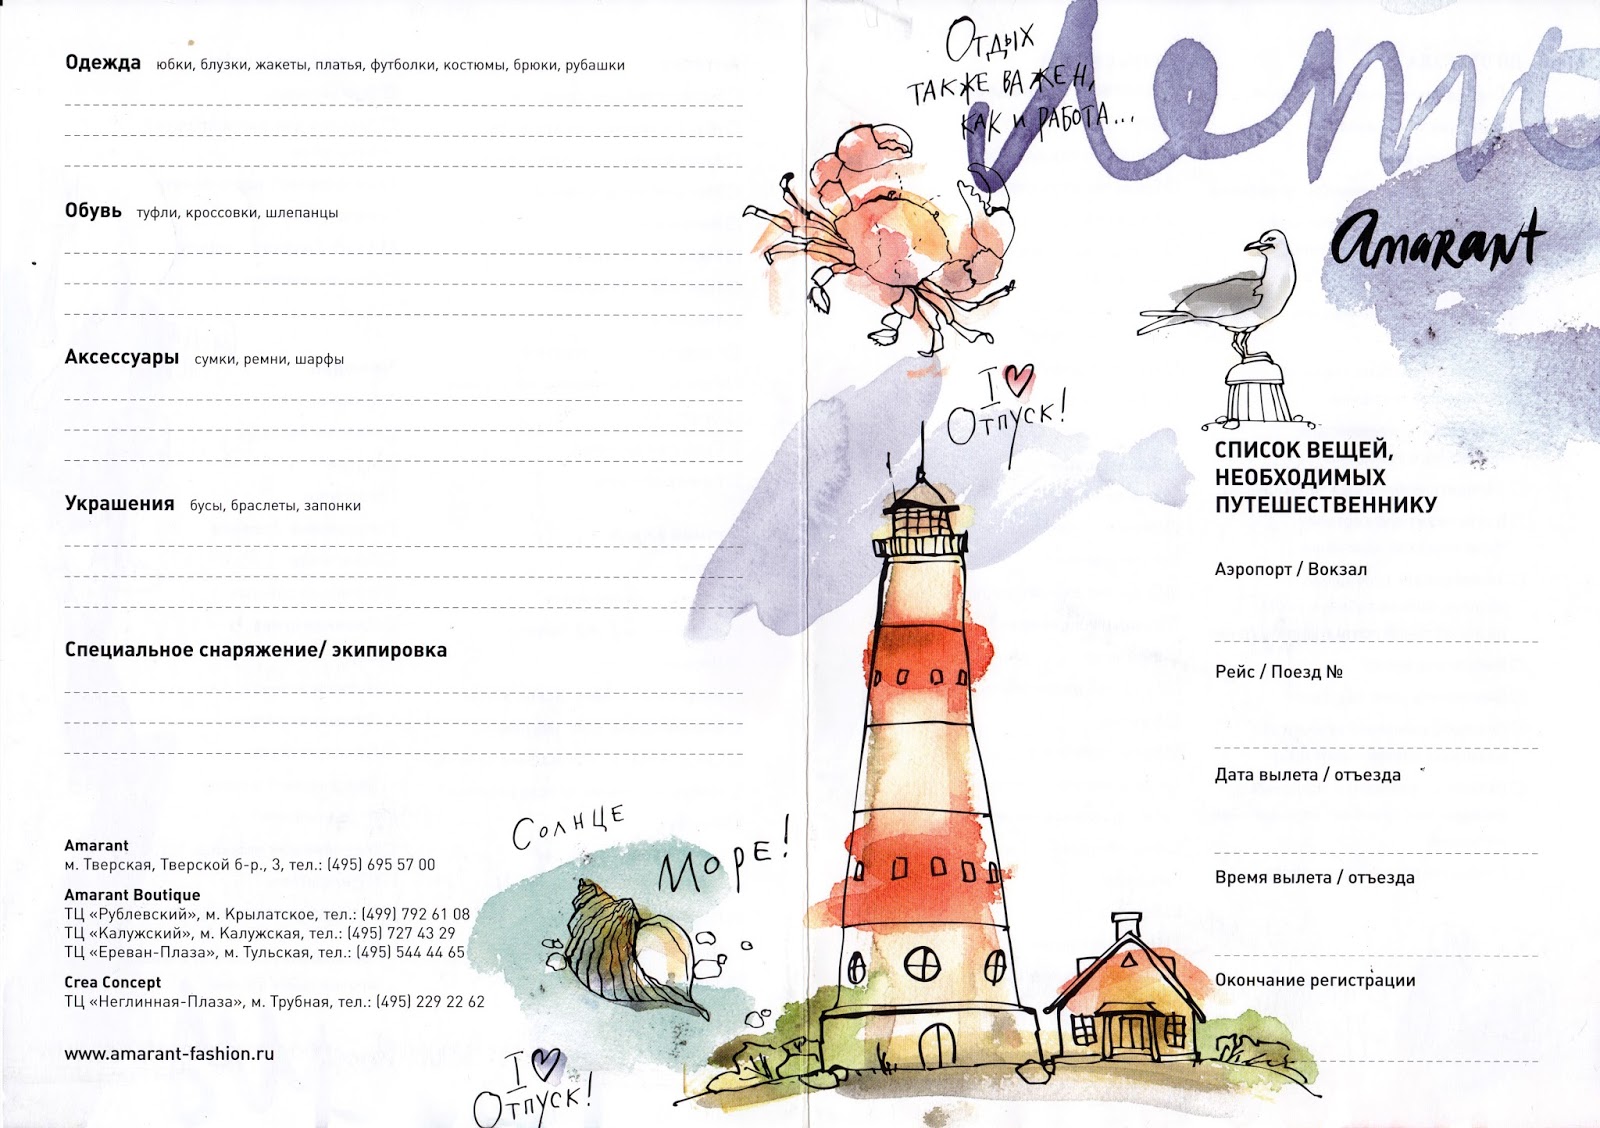 Одежда юбки, блузки, жакеты, платья, футболки, костюмы, брюки, рубашки
Обувь туфли, кроссовки, шлепанцы
Аксессуары сумки, ремни, шарфы
Украшения бусы, браслеты, запонки
Специальное снаряжение/ экипировка
Amarant
м. Тверская, Тверской б-р., 3, тел.: (495) 695 57 00
Amarant Boutique
ТЦ «Рублевский», м. Крылатское, тел.: (499) 792 61 08
ТЦ «Калужский», м. Калужская, тел.: (495) 727 43 29
ТЦ «Ереван-Плаза», м. Тульская, тел.: (495) 544 44 65
Crea Concept
ТЦ «Неглинная-Плаза», м. Трубная, тел.: (495) 229 22 62
www.amarant-fashion.ru
Солнце
Море!
I ♥
Отпуск!
Отдых
также важен,
как и работа...
лето
Amarant
I ♥
Отпуск!
СПИСОК ВЕЩЕЙ,
НЕОБХОДИМЫХ
ПУТЕШЕСТВЕННИКУ
Аэропорт / Вокзал
Рейс / Поезд №
Дата вылета / отъезда
Время вылета / отъезда
Окончание регистрации